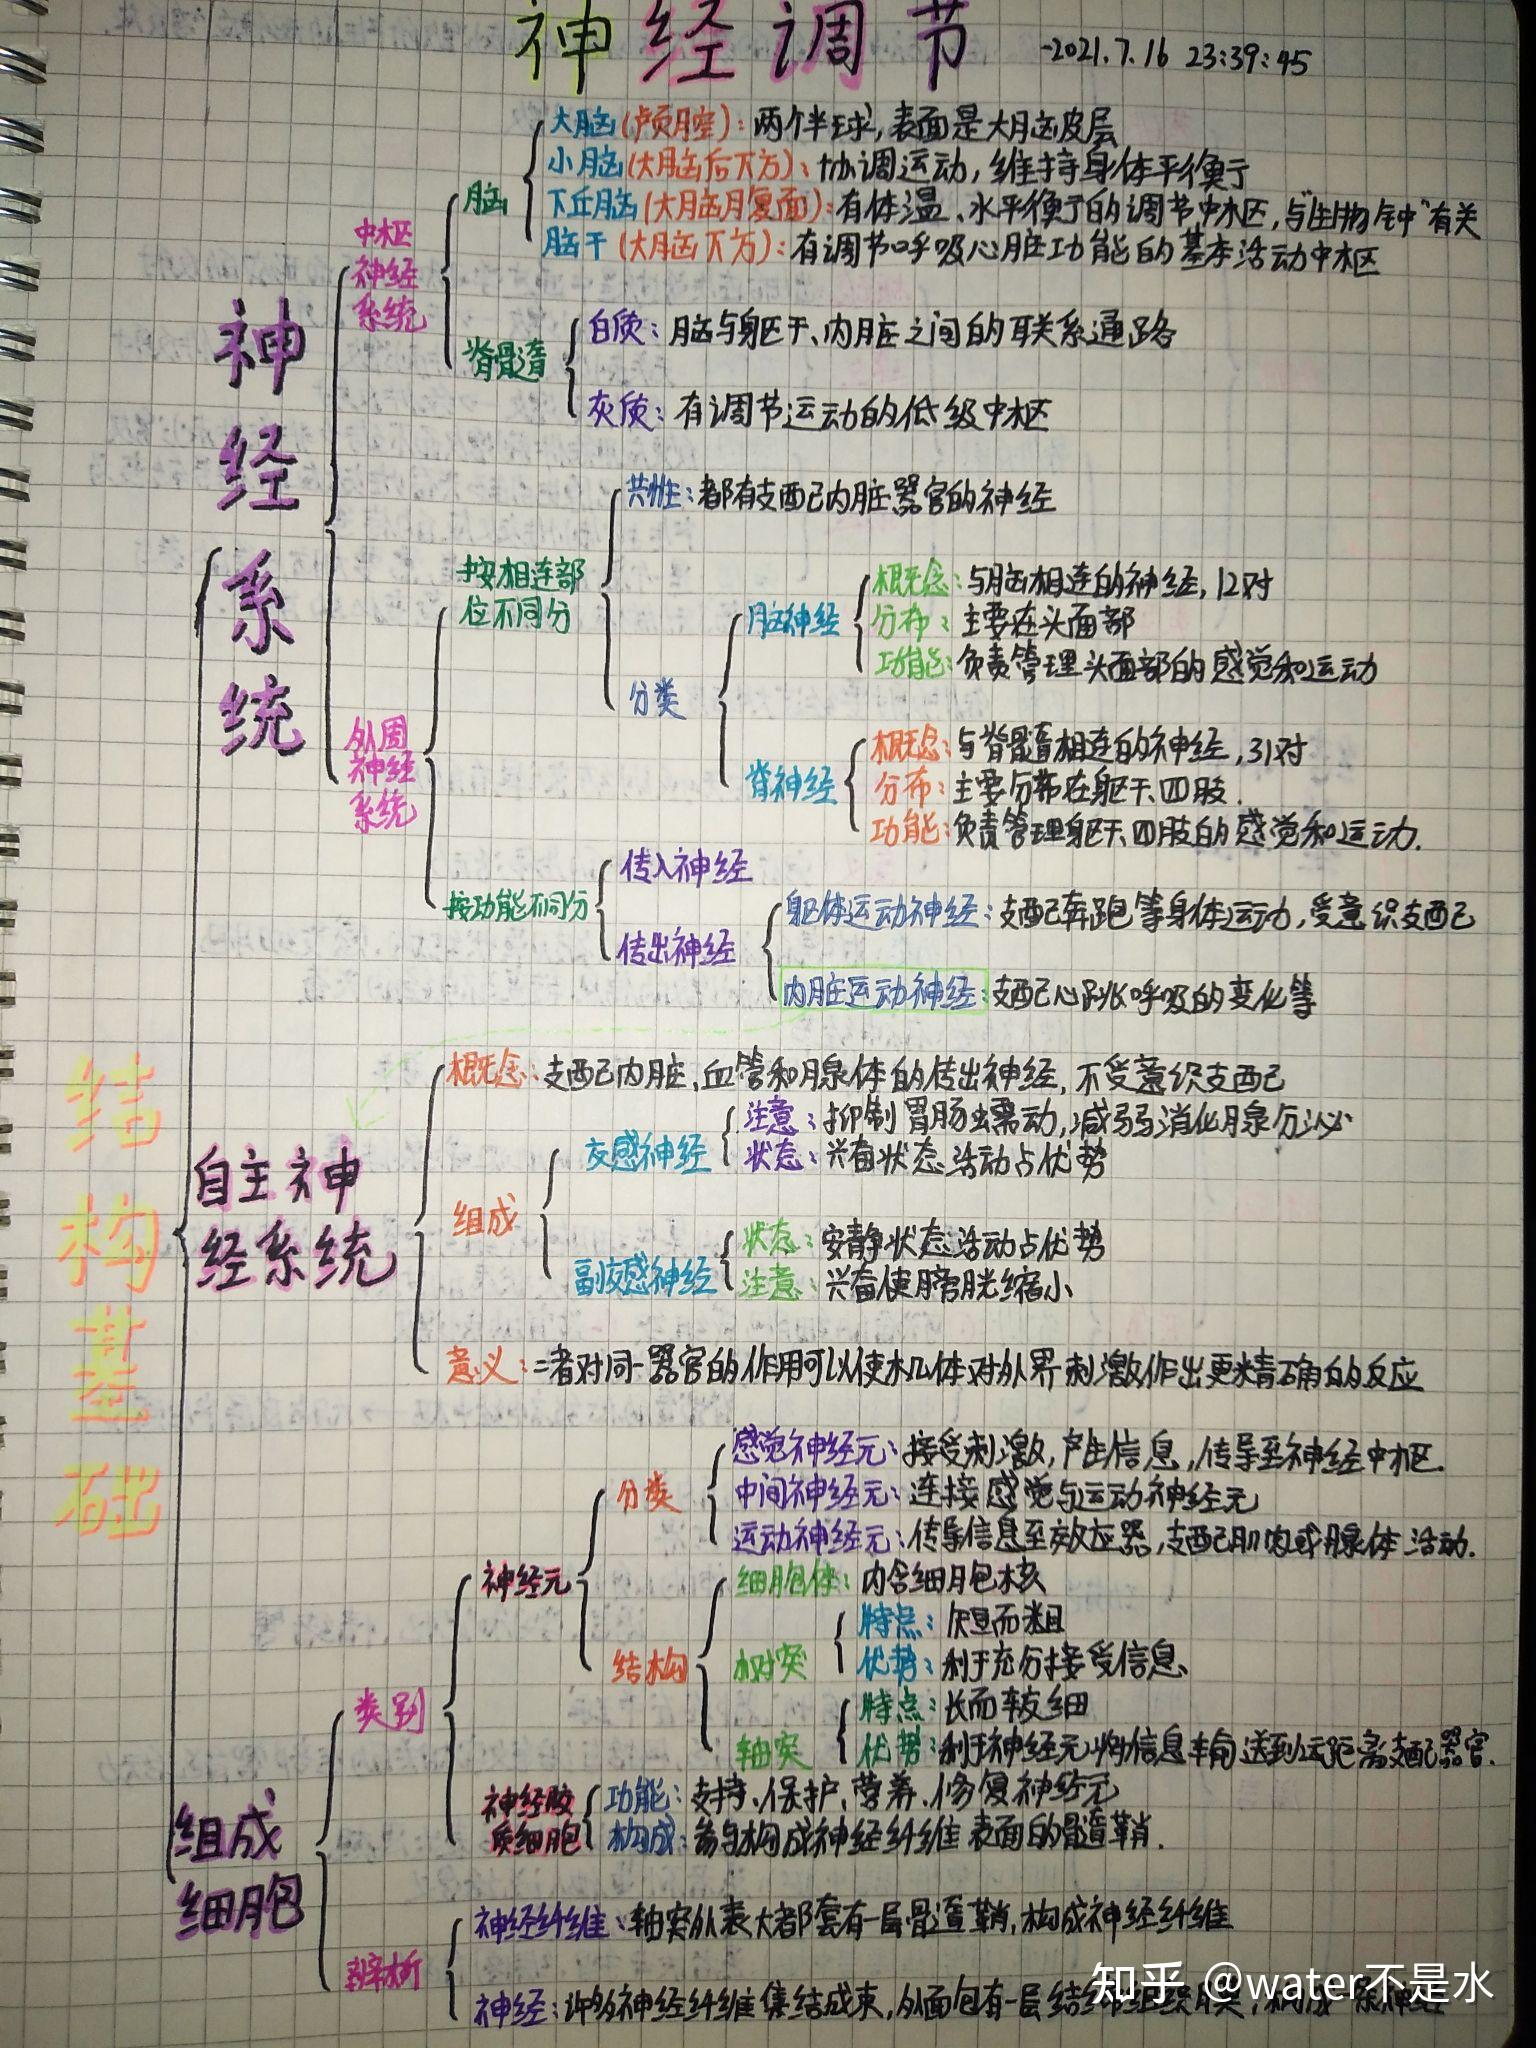 神经调节
-2021.7.16 23:39:45
结构基础
神经系统
中枢神经系统
脑
大脑(颅腔):两个半球,表面是大脑皮层
小脑(大脑后下方):协调运动,维持身体平衡
下丘脑(大脑腹面):有体温、水平衡的调节中枢,与"生物钟"有关
脑干(大脑下方):有调节呼吸心脏功能的基本活动中枢
脊髓
白质:脑与躯干、内脏之间的联系通路
灰质:有调节运动的低级中枢
外周神经系统
按相连部位不同分
共性:都有支配内脏器官的神经
分类
脑神经
概念:与脑相连的神经,12对
分布:主要在头面部
功能:负责管理头面部的感觉和运动
脊神经
概念:与脊髓相连的神经,31对
分布:主要分布在躯干、四肢.
功能:负责管理躯干、四肢的感觉和运动.
按功能不同分
传入神经
传出神经
躯体运动神经:支配奔跑等身体运动,受意识支配
内脏运动神经:支配心跳呼吸的变化等
自主神经系统
概念:支配内脏、血管和腺体的传出神经,不受意识支配
组成
交感神经
注意:抑制胃肠蠕动,减弱消化腺分泌
状态:兴奋状态活动占优势
副交感神经
状态:安静状态活动占优势
注意:兴奋使膀胱缩小
意义:二者对同一器官的作用可以使机体对外界刺激作出更精确的反应
组成细胞
类别
神经元
分类
感觉神经元:接受刺激,产生信息,传导至神经中枢.
中间神经元:连接感觉与运动神经元
运动神经元:传导信息至效应器,支配肌肉或腺体活动.
结构
细胞体:内含细胞核
树突
特点:短而粗
优势:利于充分接受信息
轴突
特点:长而较细
优势:利于神经元将信息输送到远距离支配器官.
神经胶质细胞
功能:支持、保护、营养、修复神经元
构成:参与构成神经纤维表面的髓鞘.
辨析
神经纤维:轴突外表大都套有一层髓鞘,构成神经纤维
神经:许多神经纤维集结成束,外面包有一层结缔组织膜,构成一条神经
知乎 @water不是水